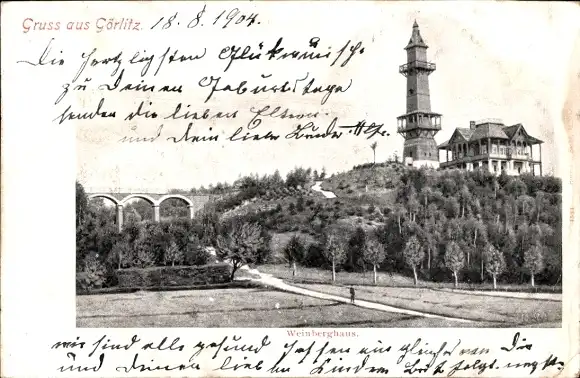 Gruss aus Görlitz. 18. 8. 1904.
Die Hertzligsten Glükwünsche
zu Deinen Geburtstage
senden die lieben Eltern
und dein lieber Bruder
Weinberghaus.
wir sind alle gesund hoffen ein gleiches von Die
und Deinen lieben Kindern Brief folgt